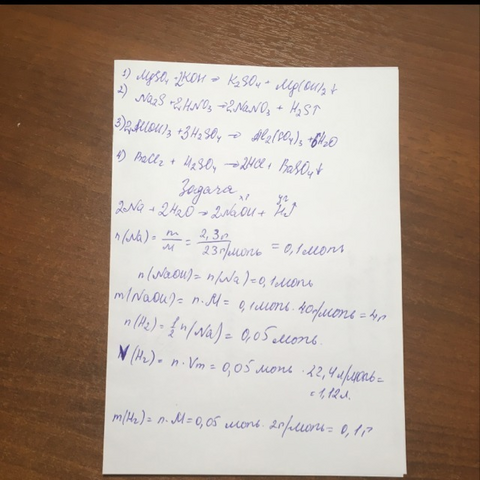 1) MgSO₄ + 2KOH → K₂SO₄ + Mg(OH)₂↓
2) Na₂S + 2HNO₃ → 2NaNO₃ + H₂S↑
3) 2Al(OH)₃ + 3H₂SO₄ → Al₂(SO₄)₃ + 6H₂O
4) BaCl₂ + H₂SO₄ → 2HCl + BaSO₄↓
Задача
2Na + 2H₂O → 2NaOH + H₂↑
n(Na) = m/M = 2,3г/23г/моль = 0,1моль
n(NaOH) = n(Na) = 0,1моль
m(NaOH) = n·M = 0,1моль·40г/моль = 4г
n(H₂) = 1/2 n(Na) = 0,05 моль.
V(H₂) = n·Vm = 0,05 моль · 22,4л/моль =
= 1,12л.
m(H₂) = n·M = 0,05 моль · 2г/моль = 0,1г